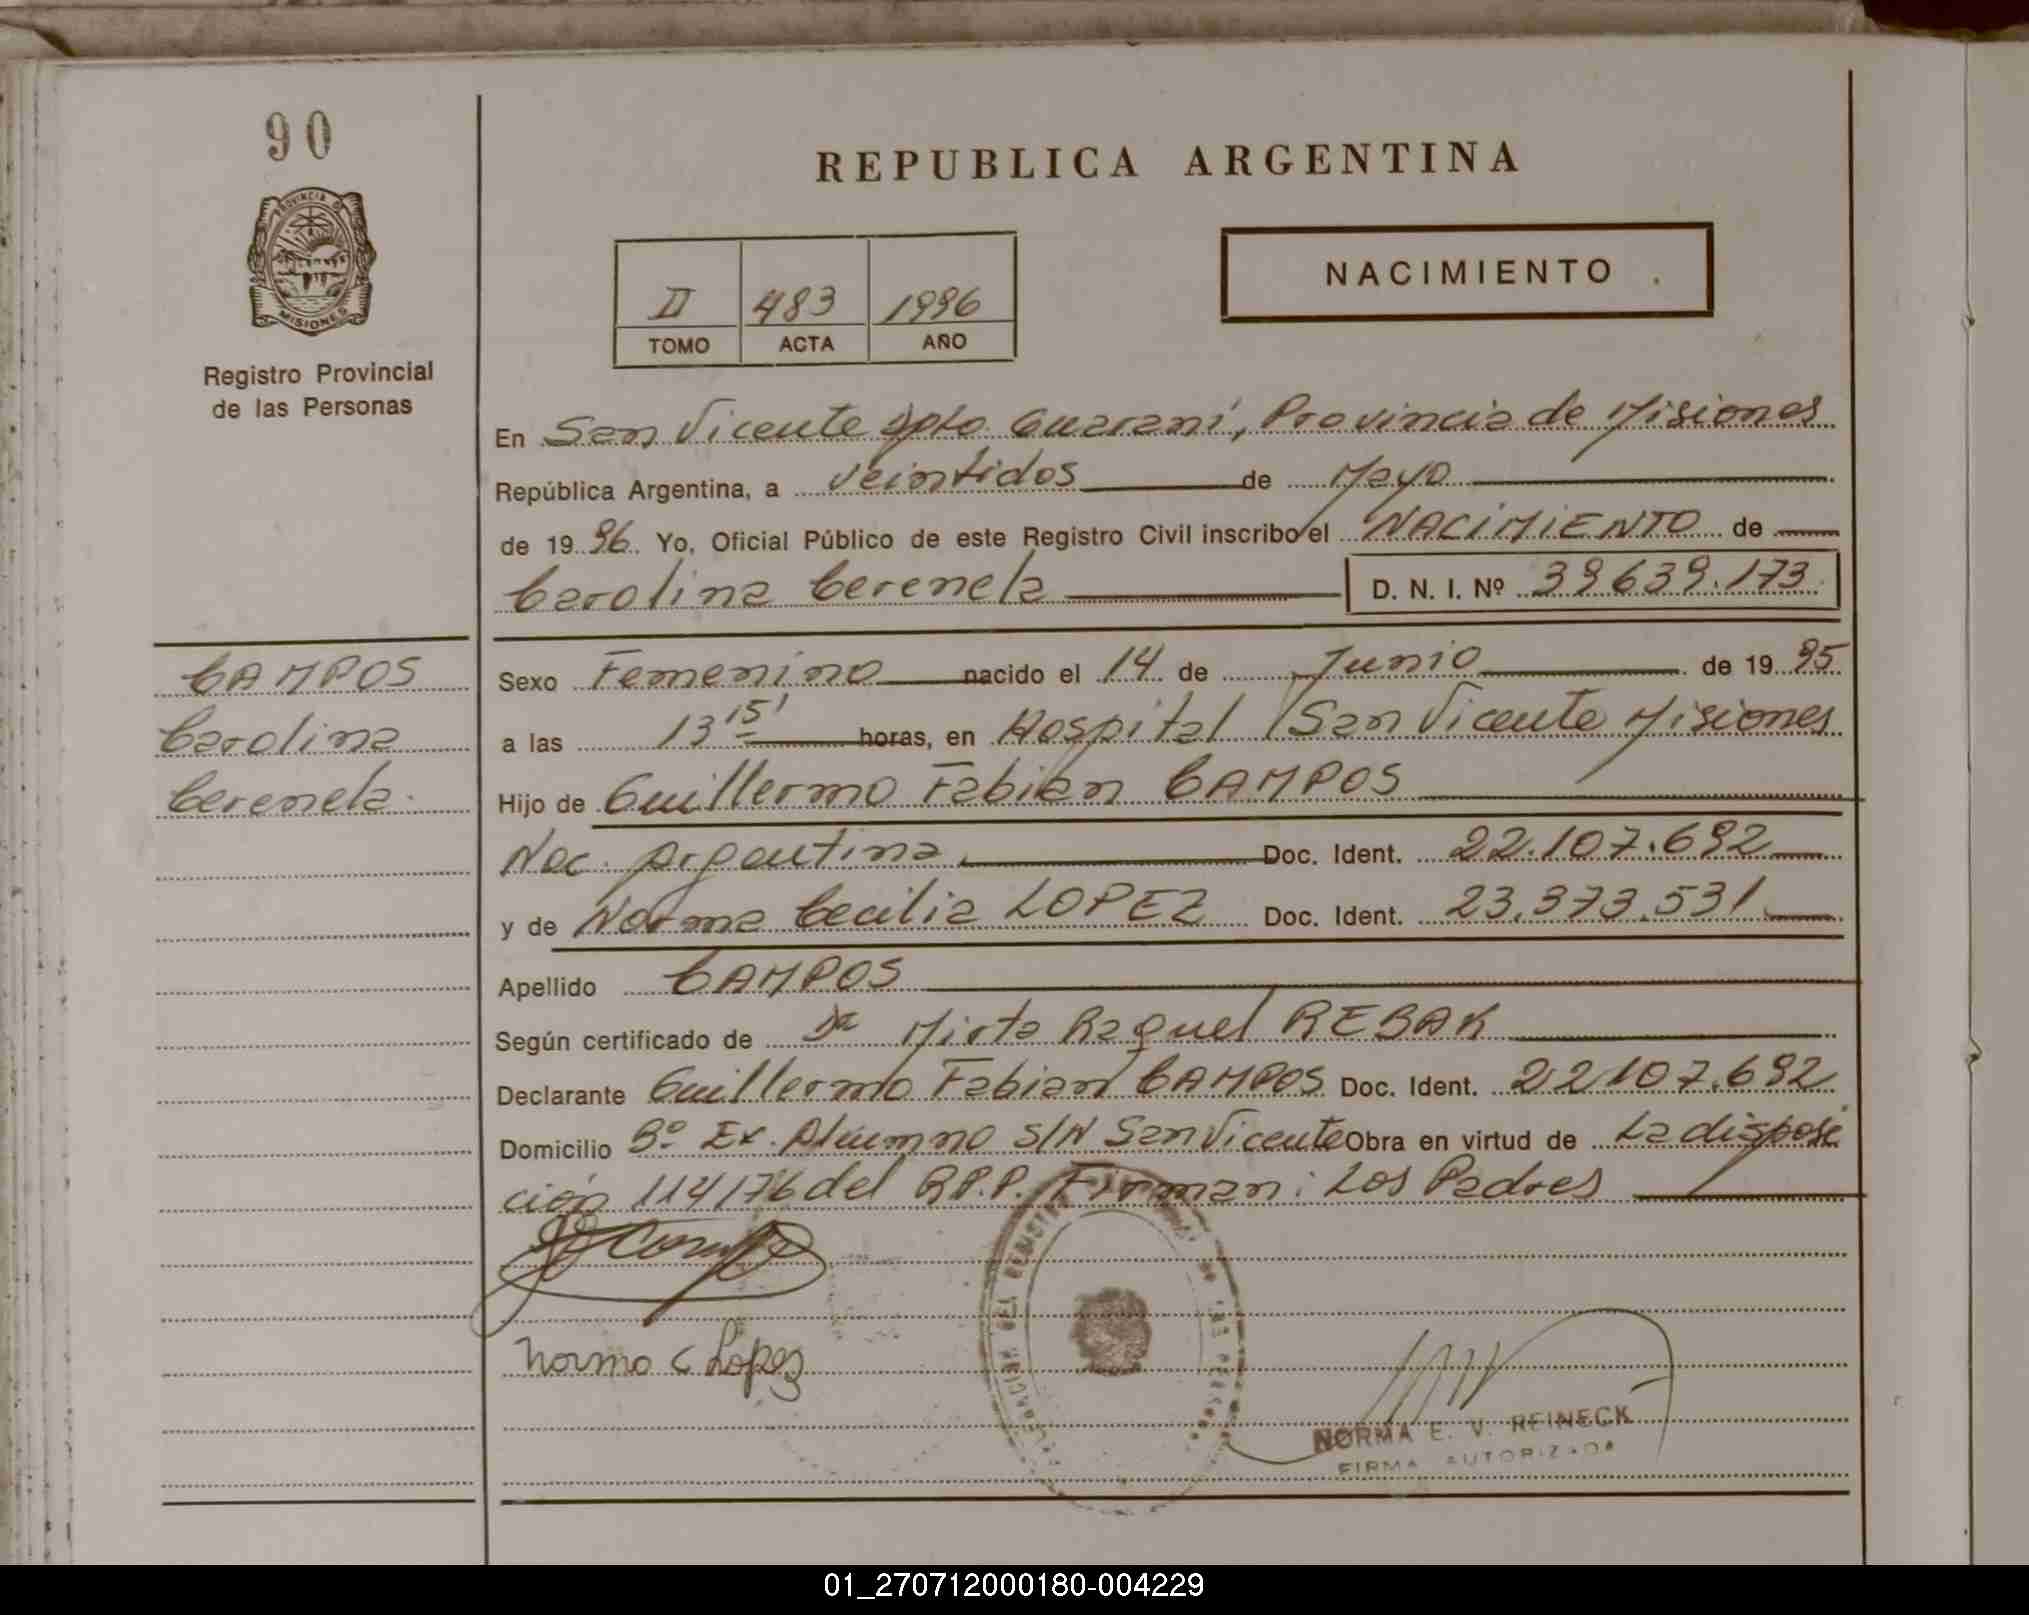 90
PROVINCIA DE
MISIONES
Registro Provincial
de las Personas
REPUBLICA ARGENTINA
II 483 1996
TOMO ACTA AÑO
NACIMIENTO
En San Vicente Dpto. Guaraní, Provincia de Misiones
República Argentina, a veintidos de Mayo
de 1996. Yo, Oficial Público de este Registro Civil inscribo el NACIMIENTO de
Carolina Cerenela D. N. I. Nº 39639.173
CAMPOS
Carolina
Cerenela.
Sexo Femenino nacido el 14 de Junio de 1995
a las 13 15' horas, en Hospital / San Vicente Misiones
Hijo de Guillermo Fabian CAMPOS
Nac. Argentina. Doc. Ident. 22.107.692
y de Norma Cecilia LOPEZ Doc. Ident. 23.373.531
Apellido CAMPOS
Según certificado de Dra Mirta Raquel REBAK
Declarante Guillermo Fabian CAMPOS Doc. Ident. 22107.692
Domicilio Bº Ex. Alumno S/N San Vicente Obra en virtud de La disposi
ción 114/76 del R.P.P. Firman: Los Padres
Norma C Lopez
NORMA E. V. REINECK
FIRMA AUTORIZADA
01_270712000180-004229